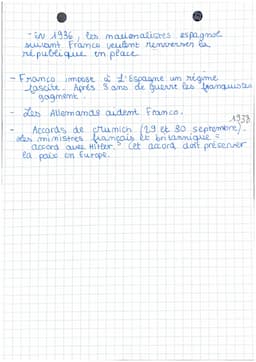 - En 1936, les nationalistes espagnol
suivant Franco veulent renverser la
république en place.
- Franco impose à l'Espagne un régime
fasciste. Après 3 ans de guerre les franquistes
gagnent.
- Les Allemands aident Franco.
1938
- Accords de Munich (29 et 30 septembre).
Les ministres français et britannique =
accord avec Hitler. Cet accord doit préserver
la paix en Europe.